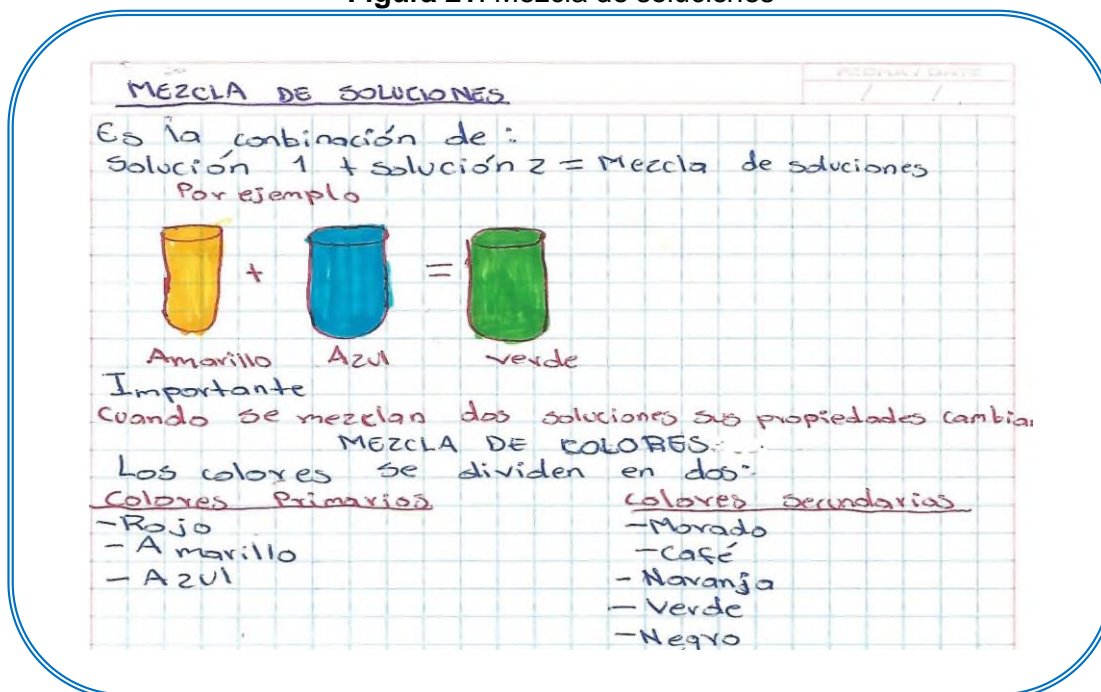 Figura 21. Mezcla de soluciones
MEZCLA DE SOLUCIONES
Es la conbinación de :
Solución 1 + solución 2 = Mezcla de soluciones
Por ejemplo
+ =
Amarillo Azul verde
Importante
Cuando se mezclan dos soluciones sus propiedades cambian
MEZCLA DE COLORES.
Los colores se dividen en dos:
Colores Primarios colores secundarias
- Rojo - Morado
- Amarillo - Café
- Azul - Naranja
- Verde
- Negro